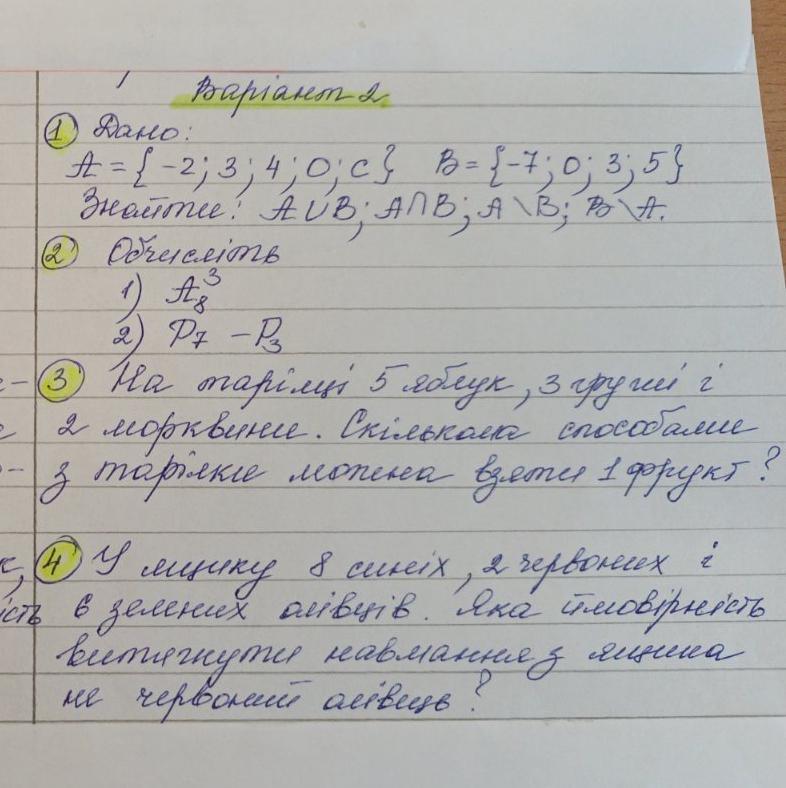 Варіант 2
1 Дано:
A = { -2; 3; 4; 0; C} B = {-7; 0; 3; 5}
Знайти: A∪B; A∩B; A\B; B\A.
2 Обчисліть
1) A₈³
2) P₇ - P₃
3 На тарілці 5 яблук, 3 груші і
2 морквини. Скількома способами
з тарілки можна взяти 1 фрукт?
4 У ящику 8 синіх, 2 червоних і
6 зелених олівців. Яка ймовірність
витягнути навмання з ящика
не червоний олівець?
ість